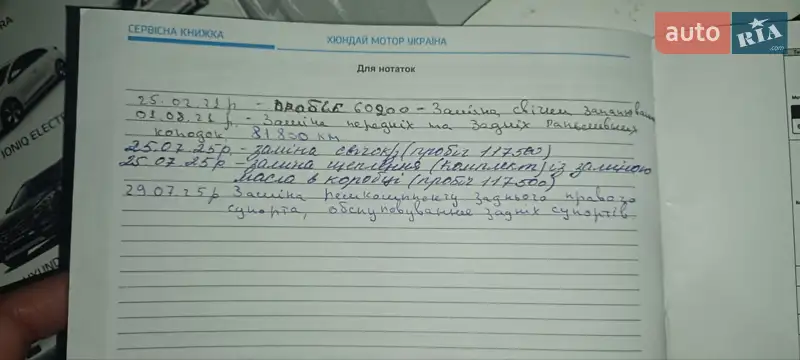 СЕРВІСНА КНИЖКА
ХЮНДАЙ МОТОР УКРАЇНА
auto RIA.com
Для нотаток
25.02.21р - ПРОБЄГ 60200 - Заміна свічей запалювання
01.08.21р. - Заміна передніх та задніх гальмівних
колодок. 81800 км
25.07.25р - заміна свічок (пробіг 117500)
25.07.25р - заміна щеплення (комплект) із заміною
масла в коробці (пробіг 117.500)
29.07.25р Заміна ремкомплекту заднього правого
супорта, обслуговування задніх супортів
IONIQ ELECTR
HYUNDAI